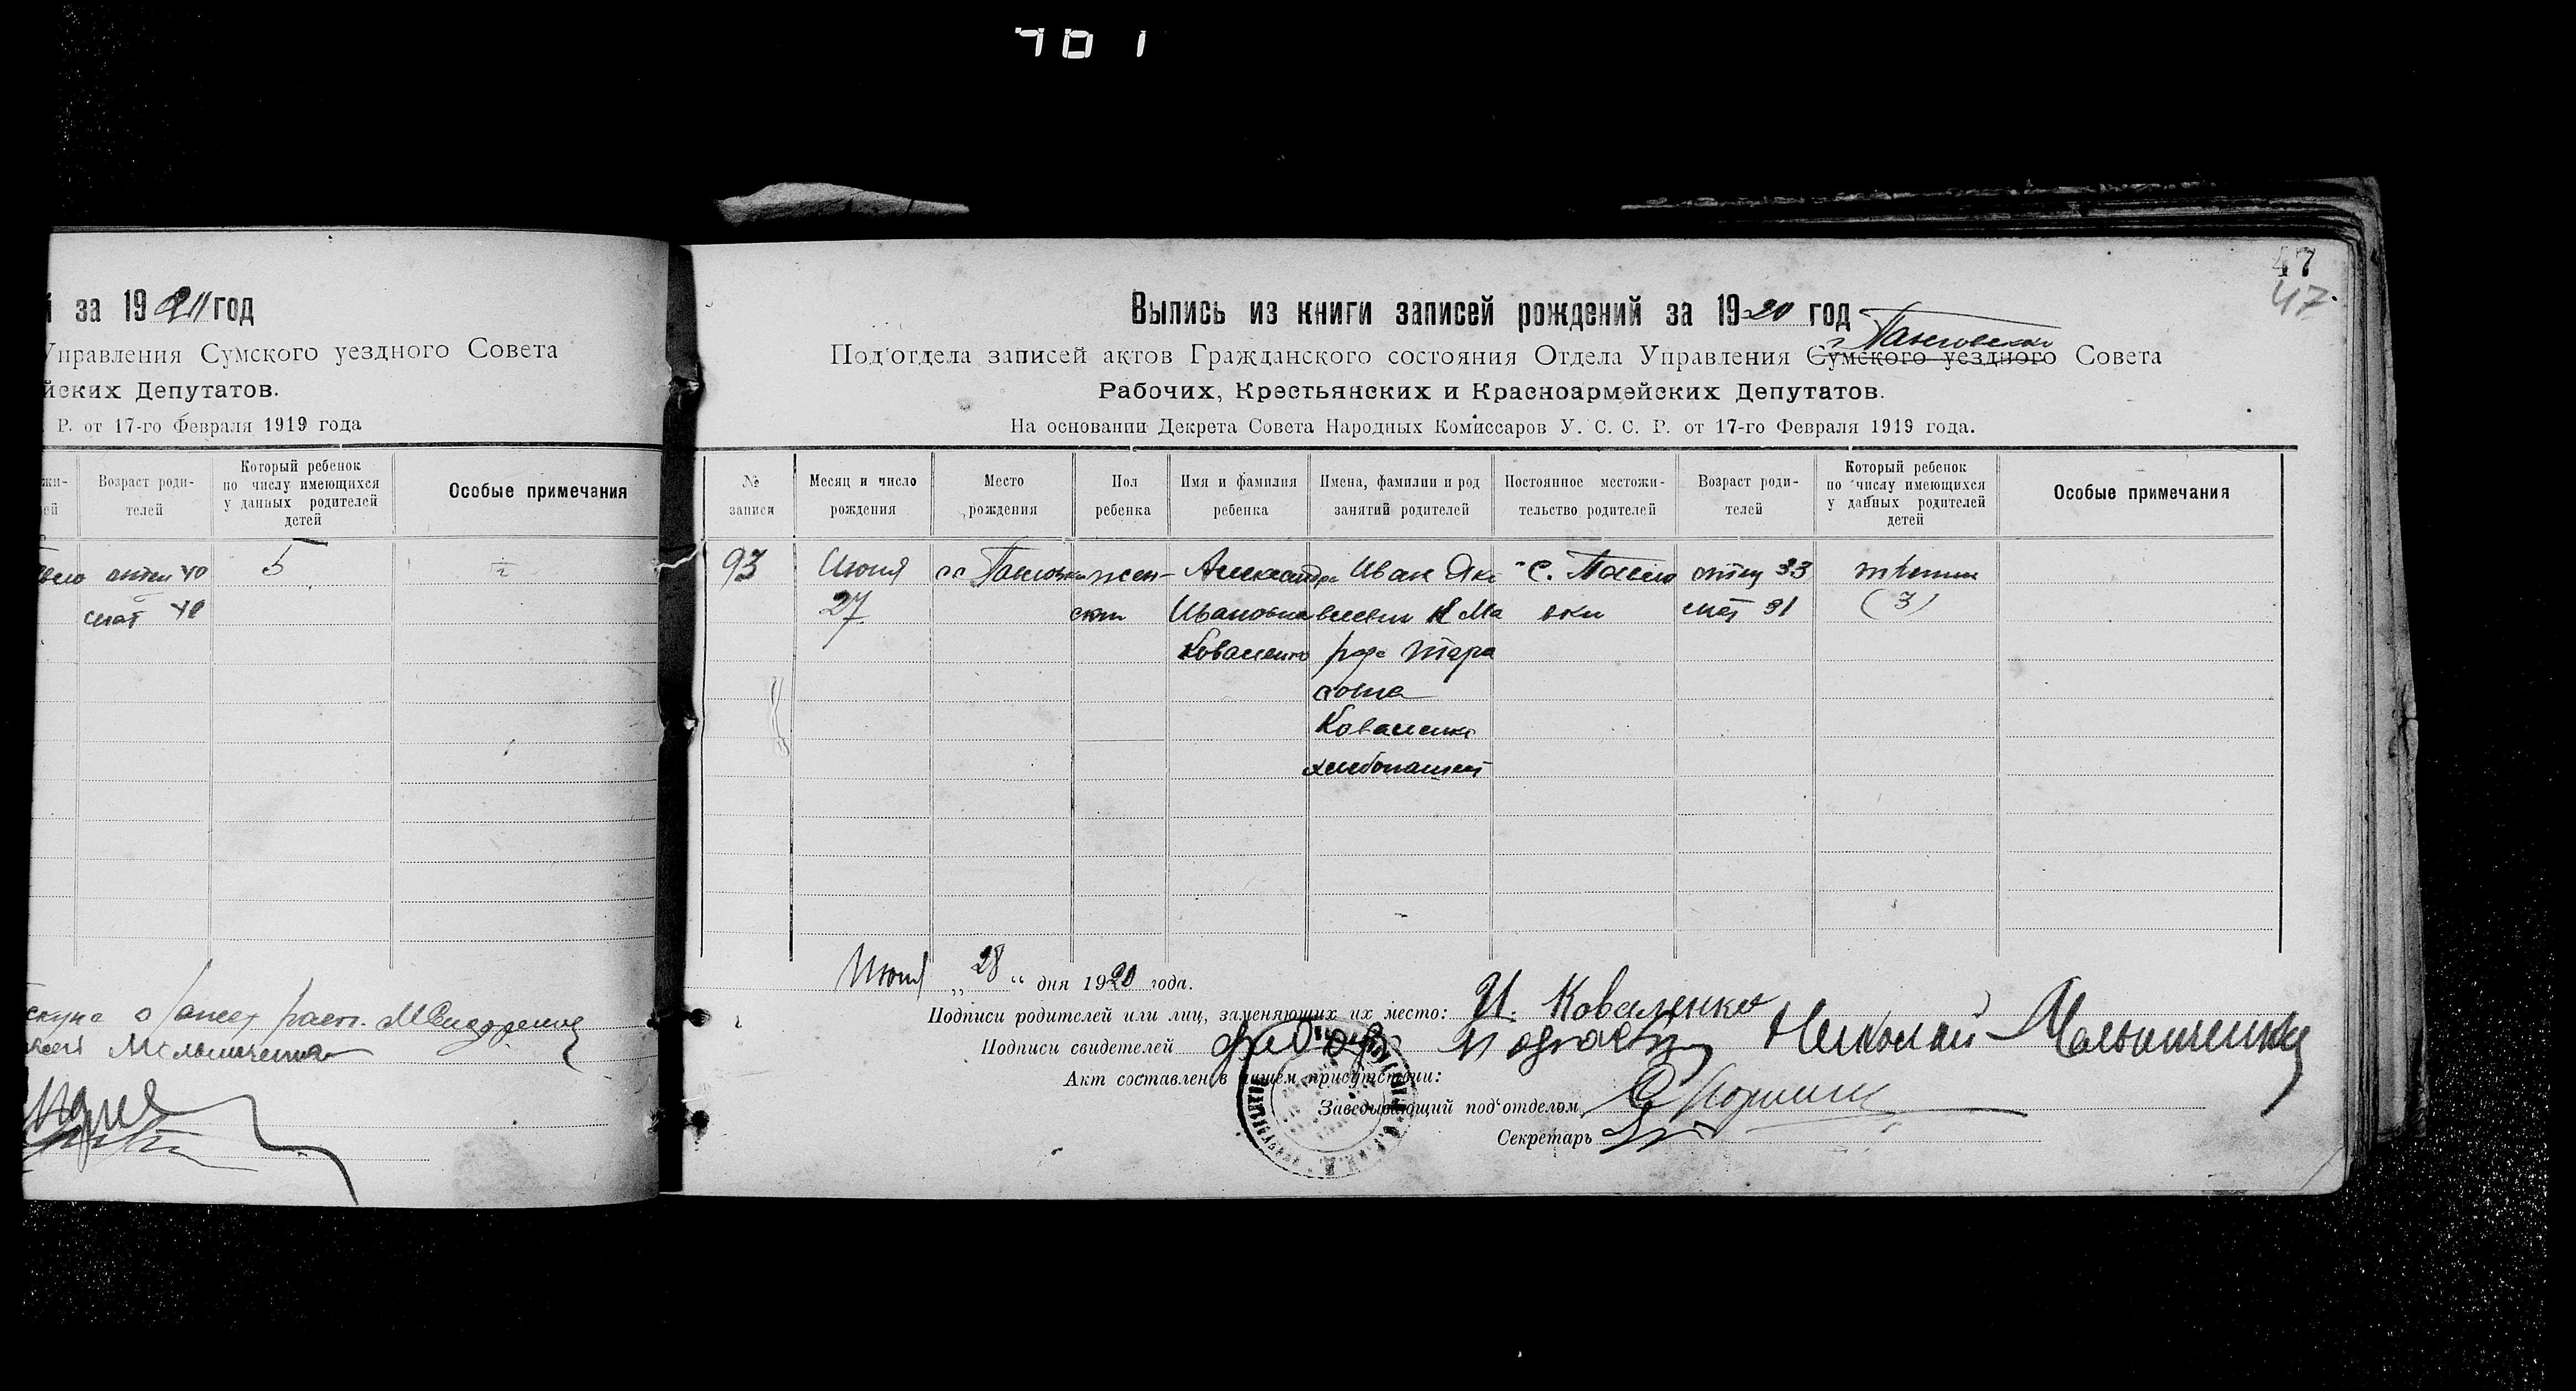 701
й за 1920 год
Управления Сумского уездного Совета
йских Депутатов.
Р. от 17-го Февраля 1919 года
жи-
ей
Возраст роди-
телей
Который ребенок
по числу имеющихся
у данных родителей
детей
Особые примечания
отец 40
5
мат 40
47
47.
Выпись из книги записей рождений за 1920 год
Под'отдела записей актов Гражданского состояния Отдела Управления Сумского уездного Совета
Рабочих, Крестьянских и Красноармейских Депутатов.
На основании Декрета Совета Народных Комиссаров У. С. С. Р. от 17-го Февраля 1919 года.
№
записи
Месяц и число
рождения
Место
рождения
Пол
ребенка
Имя и фамилия
ребенка
Имена, фамилии и род
занятий родителей
Постоянное местожи-
тельство родителей
Возраст роди-
телей
Который ребенок
по числу имеющихся
у данных родителей
детей
Особые примечания
93
Июня
27
жен-
ски
Александра
Ивановна
Коваленко
Иван Яко
влевич и Ма
рфа Тара
совна
Коваленко
хлебопашец
отец 33
мат 31
третий
(3)
Июня „ 28 “ дня 1920 года.
Подписи родителей или лиц, заменяющих их место: И. Коваленко
Подписи свидетелей Николай
Акт составлен в нашем присутствии:
Заведывающий под'отделом
Секретарь